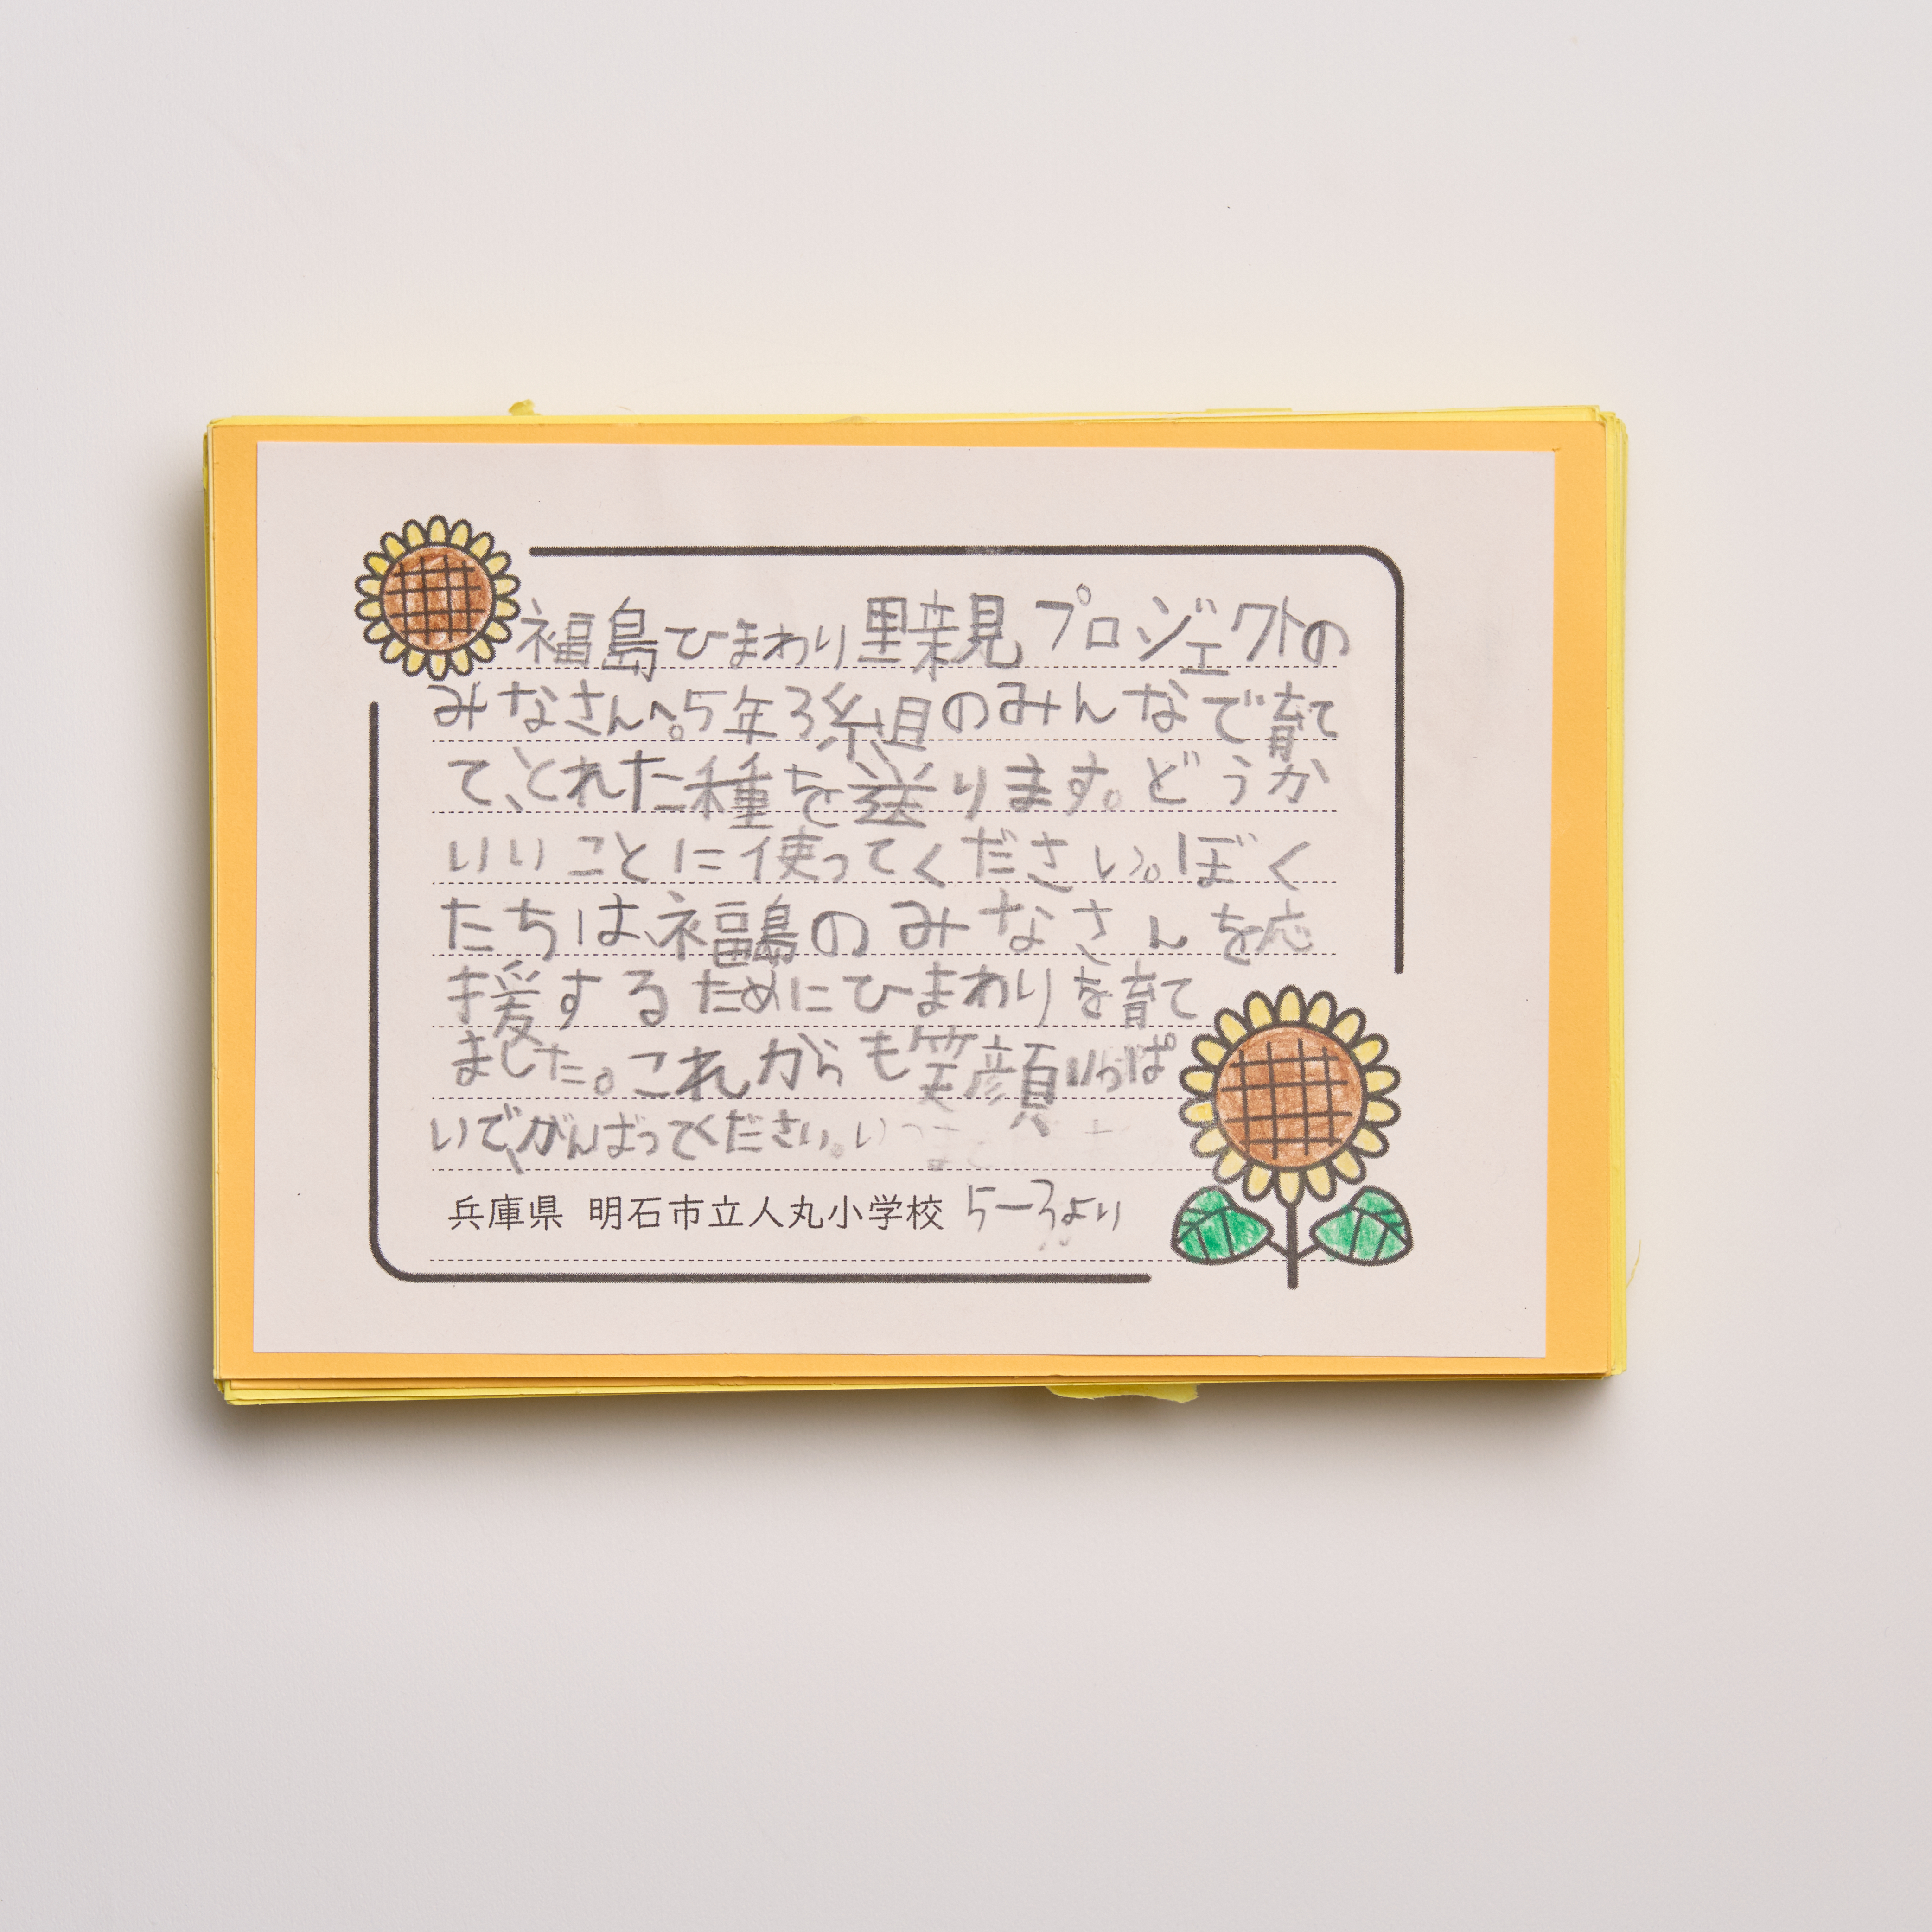 福島ひまわり里親プロジェクトの
みなさんへ。5年3組のみんなで育て
て、とれた種を送ります。どうか
いいことに使ってください。ぼく
たちは、福島のみなさんを応
援するためにひまわりを育て
ました。これからも笑顔いっぱ
いで、がんばってください。
兵庫県 明石市立人丸小学校 5-3より